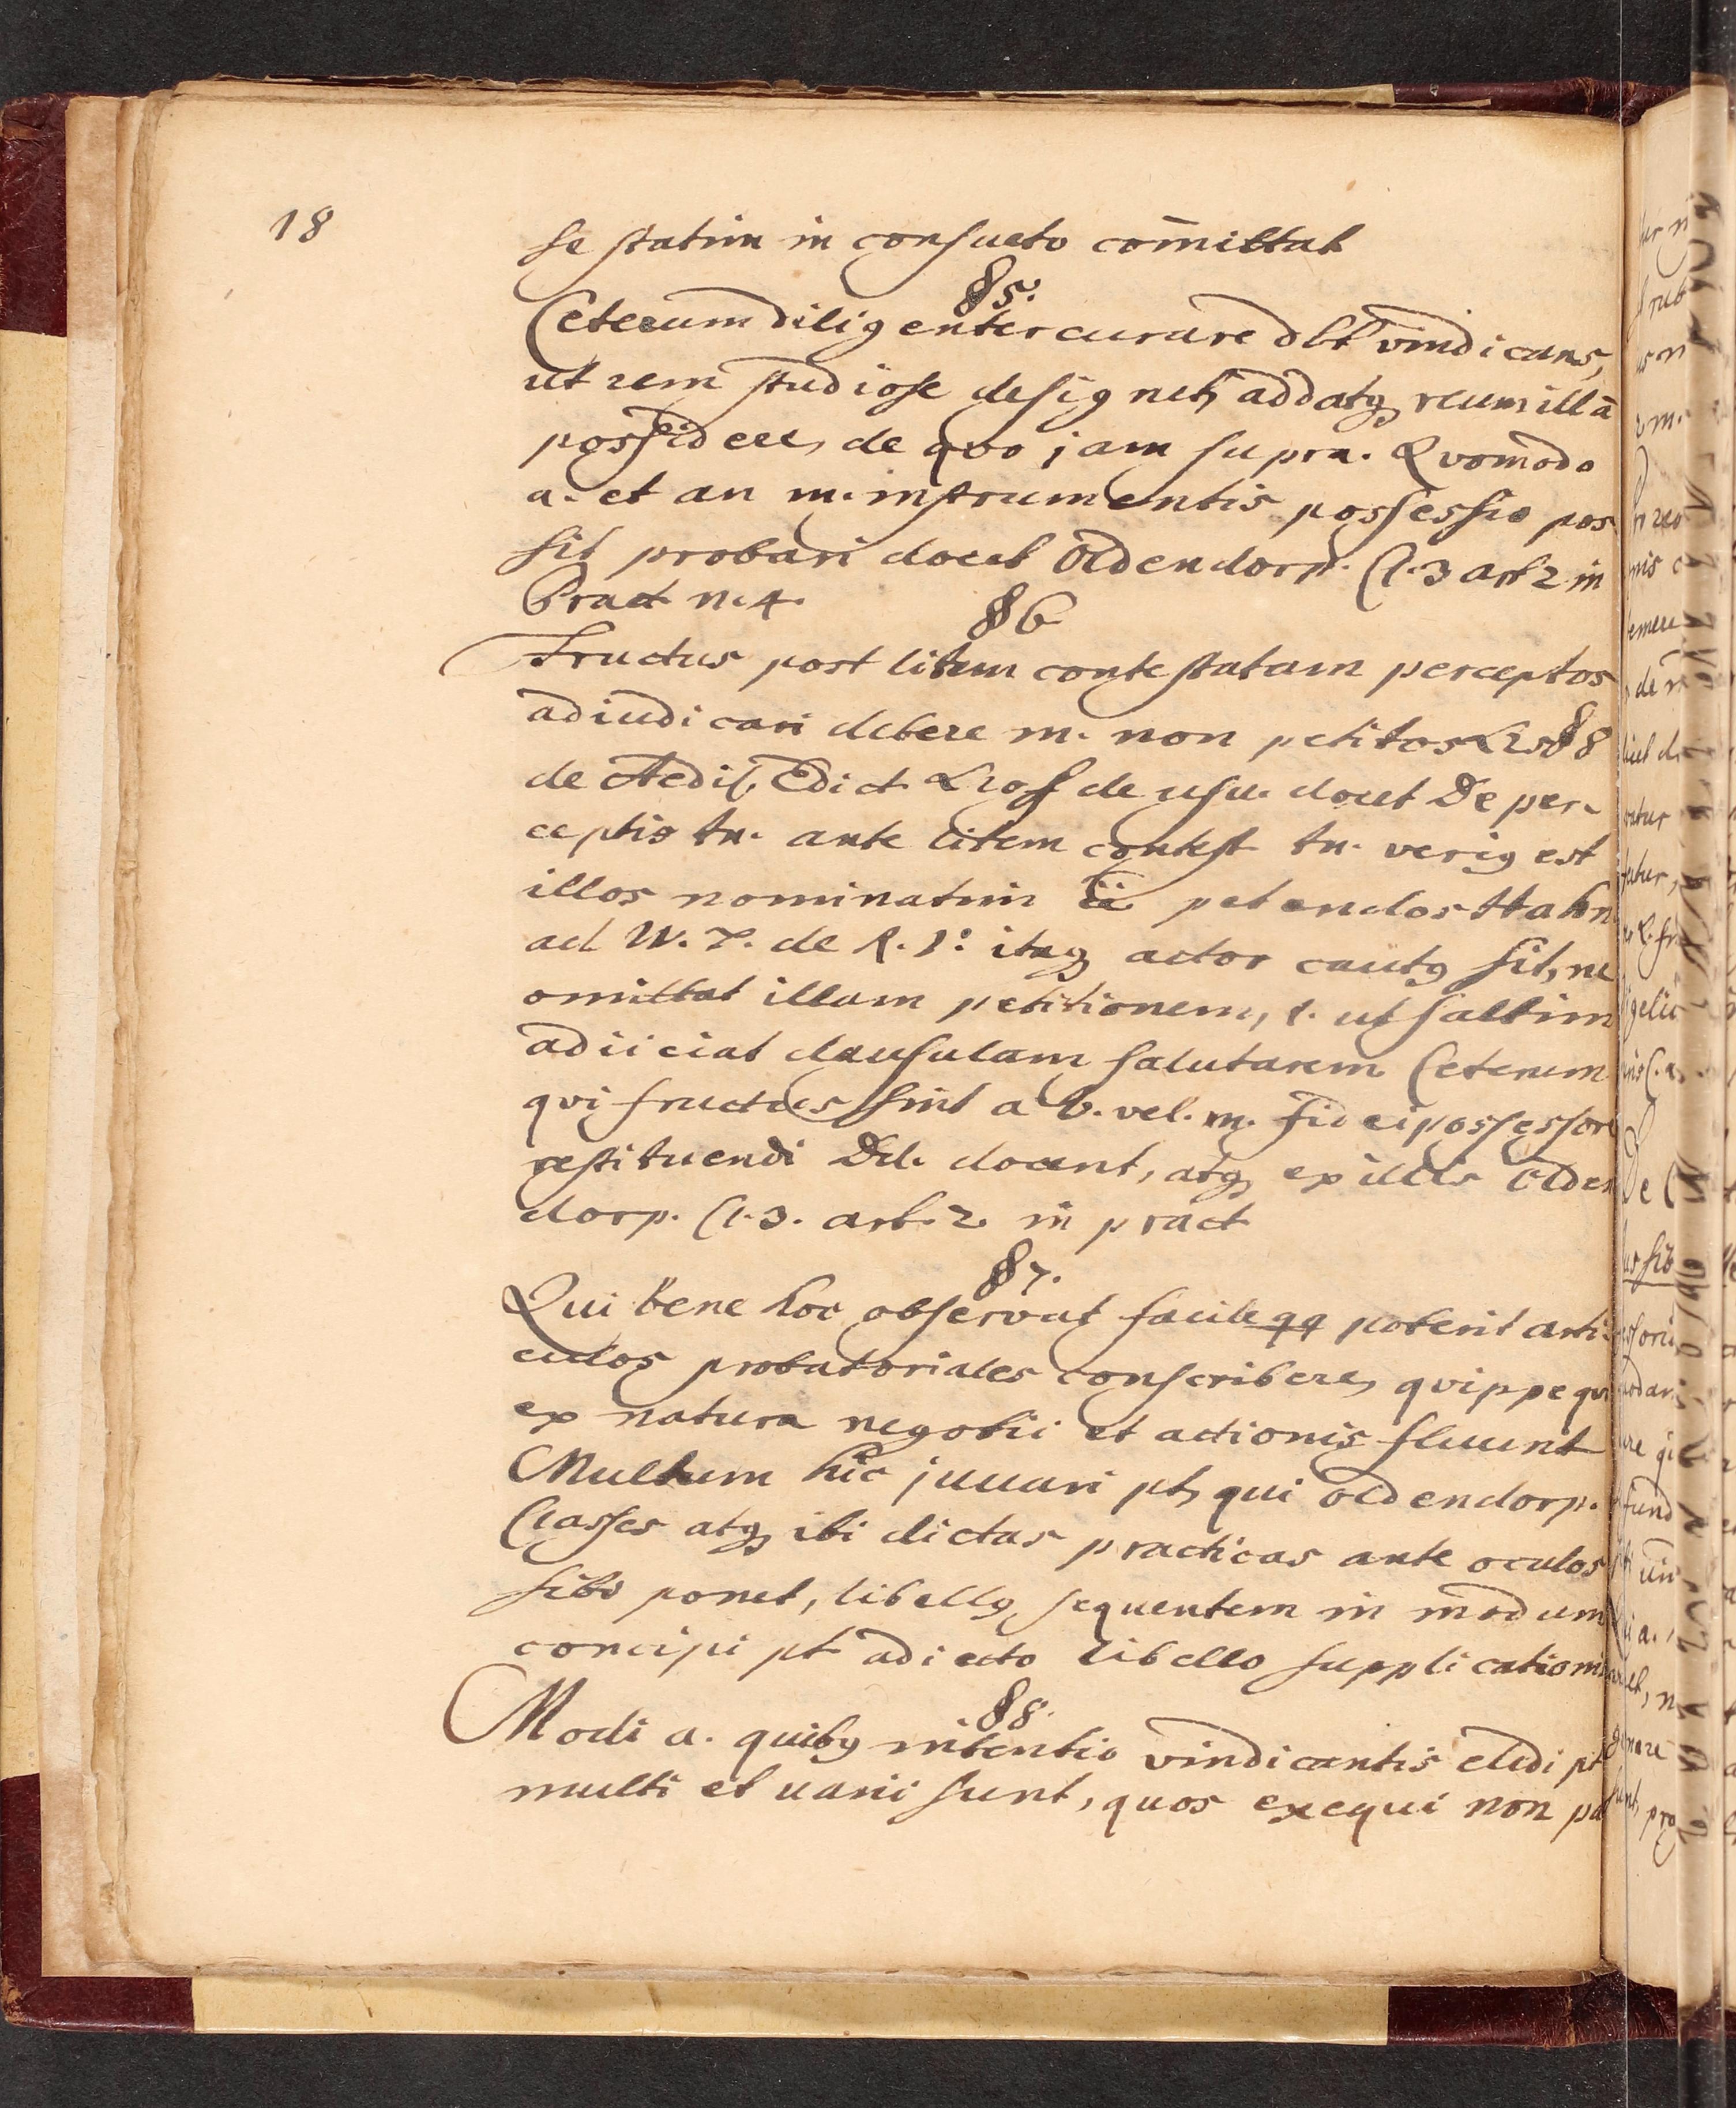 18
se statim in consueto com̄ittat
§ 5.
Ceterum diligenter curare dbt vindicans,
ut rem studiose designet, addatq, reum illā
possidere, de quo jam supra. Qvomodo
a. et an m. instrumentis possessio pos
sit probari docet Oldendorp. Cl. 3 art 2 in
Pract n. 4.
§ 6
Fructus post litem contestatam perceptos
adiudicari debere m. non petitos L 25 § 8
de Aedil. Edict de usu. docet De per-
ceptis tn. ante litem contest tn. veriq est
illos nominatim petendos Hahn
ad W. T. de R. V: itaq actor cautq sit, ne
omittat illam petitionem, l. ut saltim
adiiciat clausulam salutarem Ceterum
qvi fructus sint a b. vel. m. fidei possessore
restituendi Dd. docent, atq, ex illis Olden
dorp. Cl. 3. art. 2 in pract
§ 7.
Qui bene hoc observat facile qq poterit arti-
culos probatoriales conscribere, qvippe qvi
ex natura negotii et actionis fluunt
Multum hic juuari pt, qui Oldendorp.
Classes atq, ibi dictas practicas ante oculos
sibi ponet, libellq sequentem in modum
concipi pt adiecto libello supplicationis
§ 8.
Modi a. quibq intentio vindicantis eludi pt
multi et uarii sunt, quos exequi non pa